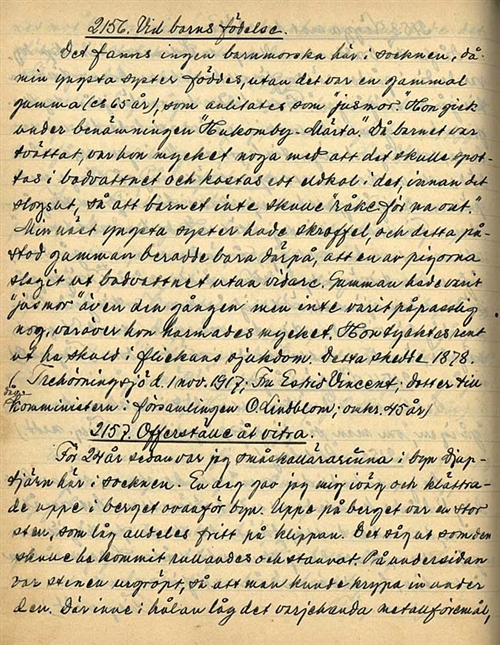 2156. Vid barns födelse.
Det fanns ingen barnmorska här i socknen, då
min yngsta syster föddes, utan det var en gammal
gumma (c:s 65 år), som anlitades som "jusmor". Hon gick
under benämningen "Hukomby-Märta." Då barnet var
tvättat, var hon mycket noga med att det skulle spot-
tas i badvattnet och kastas ett eldkol i det, innan det
slogs ut, så att barnet inte skulle "råke för na ont."
Min näst yngsta syster hade skroffel, och detta på-
stod gumman berodde bara därpå, att en av pigorna
slagit ut badvattnet utan vidare. Gumman hade varit
"jusmor" även den gången men inte varit påpasslig
nog, varöver hon harmades mycket. Hon tycktes rent
ut ha skuld i flickans sjukdom. Detta skedde 1878.
(Trehörningsjö d. 1 nov. 1917; Fru Vincent; dotter till
dåv. komministern i församlingen O. Lindblom; omkr. 45 år)
2157. Offerställe åt vitra.
För 24 år sedan var jag småskollärarinna i byn Djup-
tjärn här i socknen. En dag gav jag mig iväg och klättra-
de uppe i berget ovanför byn. Uppe på berget var en stor
sten, som låg alldeles fritt på klippan. Det såg ut som den
skulle ha kommit rullandes och stannat. På undersidan
var stenen urgröpt, så att man kunde krypa in under
den. Där inne i hålan låg det varjehanda metallföremål,